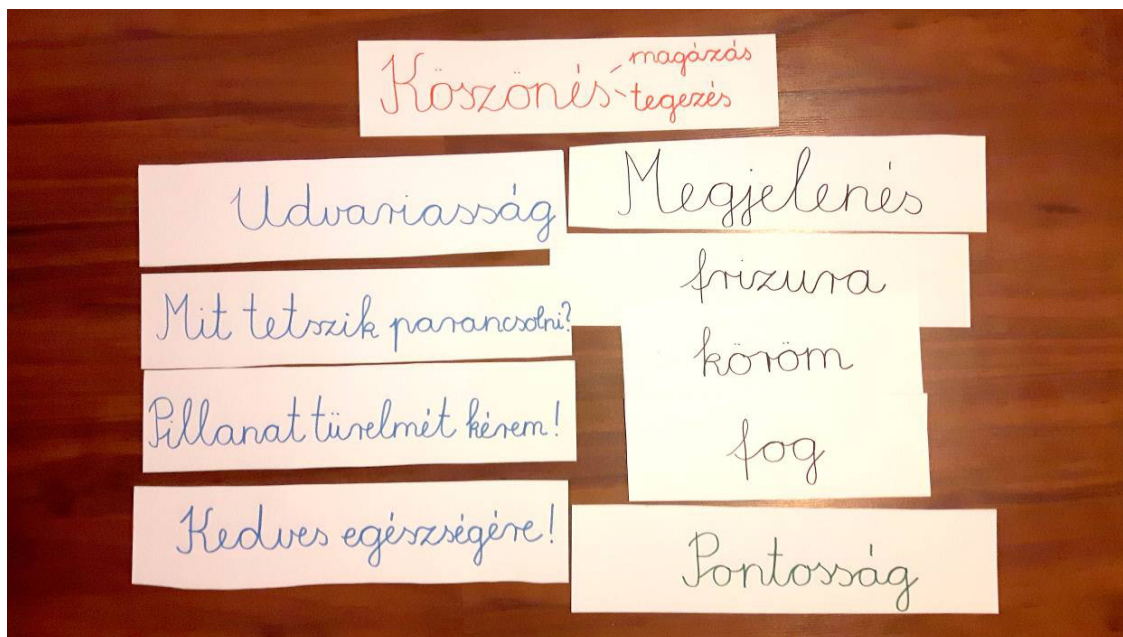 Köszönés magázás
tegezés
Udvariasság
Mit tetszik parancsolni?
Pillanat türelmét kérem!
Kedves egészségére!
Megjelenés
frizura
köröm
fog
Pontosság